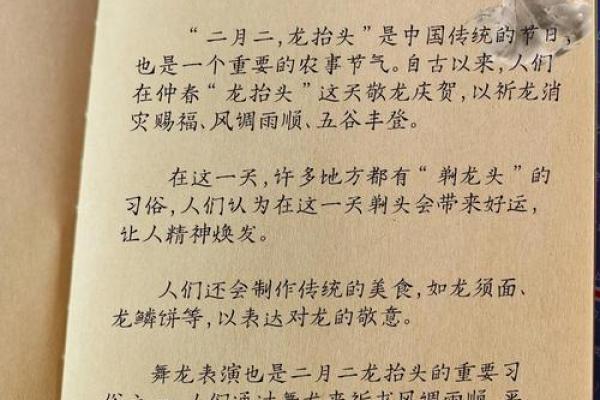 “二月二,龙抬头”是中国传统的节日,
也是一个重要的农事节气。自古以来,人们
在仲春“龙抬头”这天敬龙庆贺,以祈龙消
灾赐福、风调雨顺、五谷丰登。
在这一天,许多地方都有“剃龙头”的
习俗,人们认为在这一天剃头会带来好运,
让人精神焕发。
人们还会制作传统的美食,如龙须面、
龙鳞饼等,以表达对龙的敬意。
舞龙表演也是二月二龙抬头的重要习
俗之一,人们通过舞龙来祈求风调雨顺、平